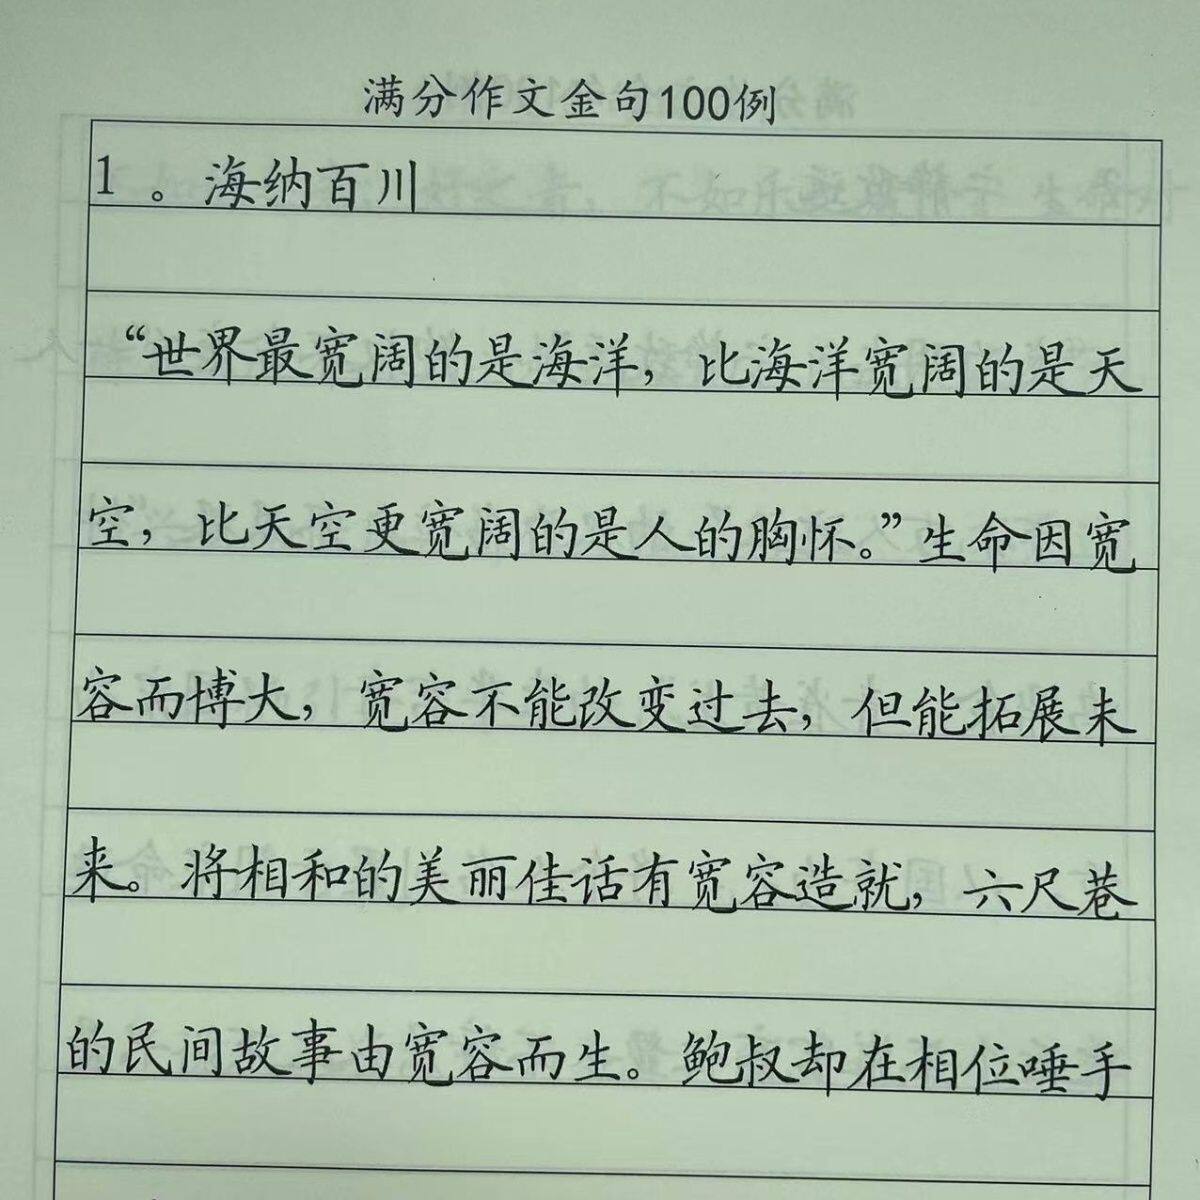 满分作文金句100例
1。海纳百川
“世界最宽阔的是海洋，比海洋宽阔的是天
空，比天空更宽阔的是人的胸怀。”生命因宽
容而博大，宽容不能改变过去，但能拓展未
来。将相和的美丽佳话有宽容造就，六尺巷
的民间故事由宽容而生。鲍叔却在相位唾手